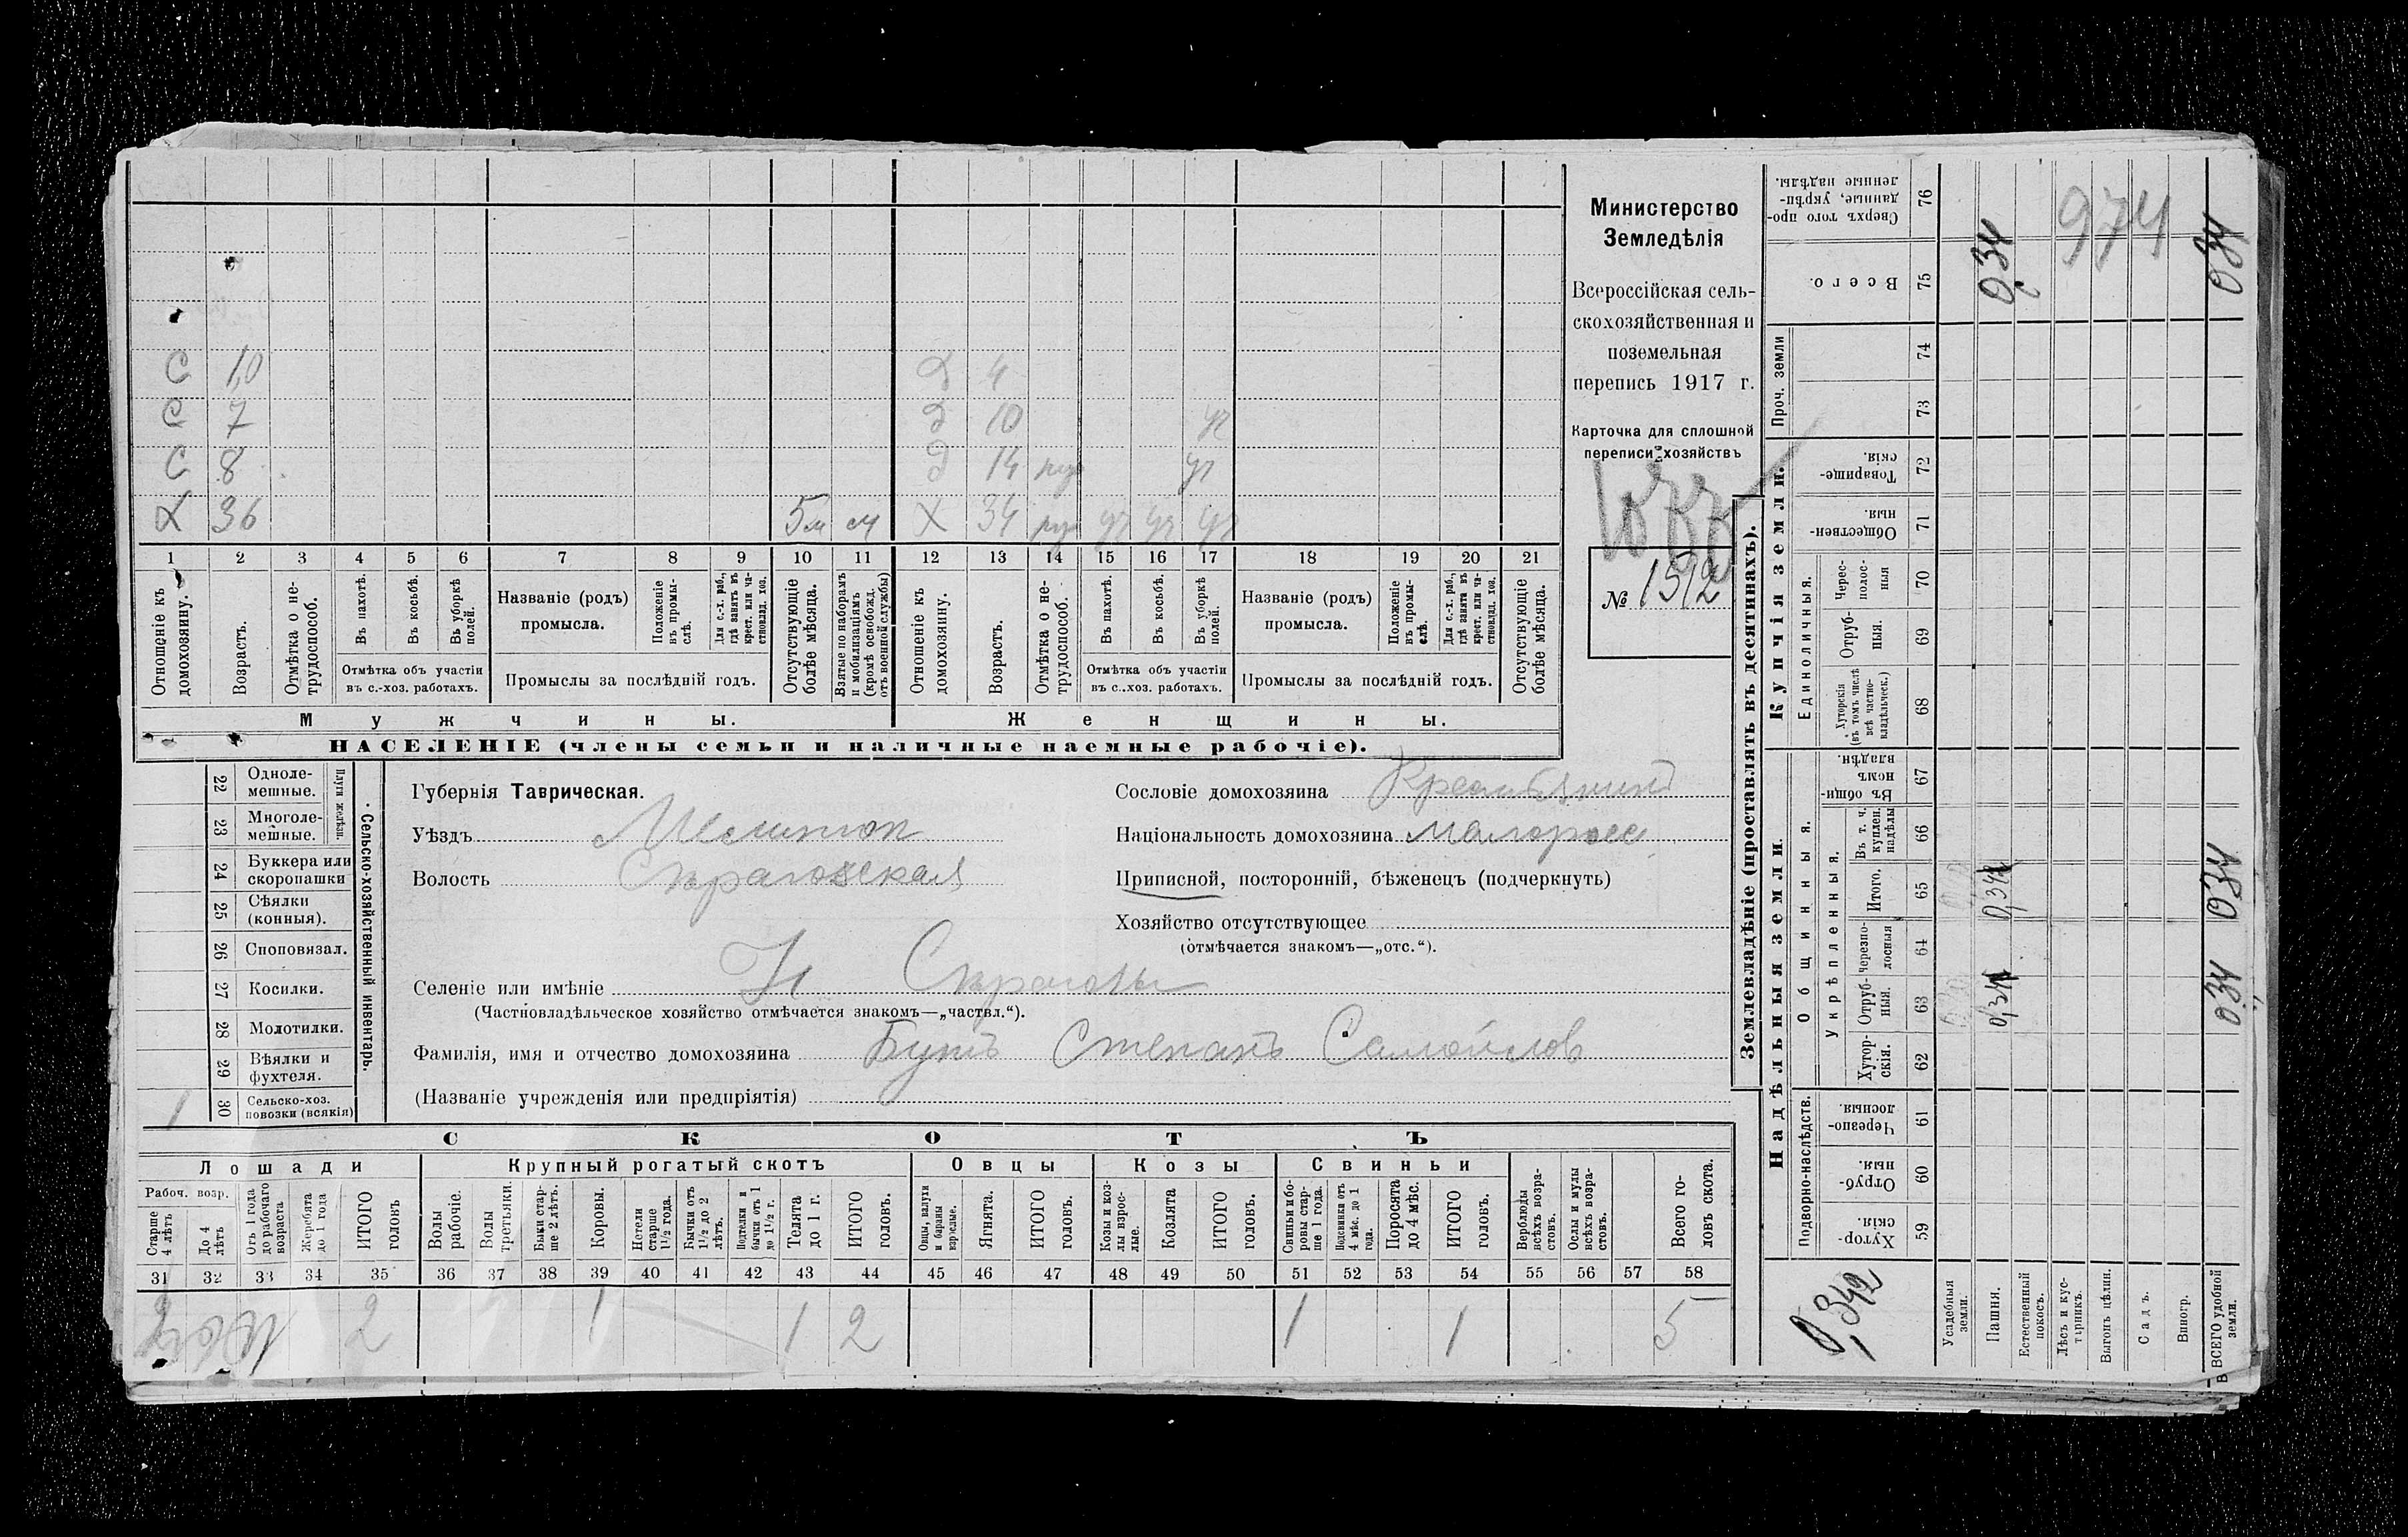 С 10 Д 4
С 7 Д 10
С 8 Д 14
Х 36 5м Х 34
1 2 3 4 5 6 7 8 9 10 11 12 13 14 15 16 17 18 19 20 21
Отношеніе къ домохозяину.
Возрастъ.
Отмѣтка о не-трудоспособ.
Въ пахотѣ.
Въ косьбѣ.
Въ уборкѣ полей.
Отмѣтка объ участіи въ с.-хоз. работахъ.
Названіе (родъ) промысла.
Положеніе въ промы-слѣ.
Для с.-х. раб., гдѣ занятъ въ крест. или ча-стновлад. хоз.
Промыслы за послѣдній годъ.
Отсутствующіе болѣе мѣсяца.
Взятые по наборамъ и мобилизаціямъ (кромѣ освобожд. отъ военной службы)
Отношеніе къ домохозяину.
Возрастъ.
Отмѣтка о не-трудоспособ.
Въ пахотѣ.
Въ косьбѣ.
Въ уборкѣ полей.
Отмѣтка объ участіи въ с.-хоз. работахъ.
Названіе (родъ) промысла.
Положеніе въ промы-слѣ.
Для с.-х. раб., гдѣ занята въ крест. или ча-стновлад. хоз.
Промыслы за послѣдній годъ.
Отсутствующіе болѣе мѣсяца.
Мужчины.
Женщины.
НАСЕЛЕНІЕ (члены семьи и наличные наемные рабочіе).
Министерство
Земледѣлія
Всероссійская сель-
скохозяйственная и
поземельная
перепись 1917 г.
Карточка для сплошной
переписи хозяйствъ
№ 1512
Сельско-хозяйственный инвентарь.
Плуги желѣзн.
22 Одноле-мешные.
23 Многоле-мешные.
24 Буккера или скоропашки
25 Сѣялки (конныя).
26 Сноповязал.
27 Косилки.
28 Молотилки.
29 Вѣялки и фухтеля.
30 Сельско-хоз. повозки (всякія) 1
Губернія Таврическая.
Уѣздъ Мелитоп
Волость
Селеніе или имѣніе Н
(Частновладѣльческое хозяйство отмѣчается знакомъ—„частвл.“).
Фамилія, имя и отчество домохозяина Бутъ Степанъ Самойлов
(Названіе учрежденія или предпріятія)
Сословіе домохозяина
Національность домохозяина малоросс
Приписной, посторонній, бѣженецъ (подчеркнуть)
Хозяйство отсутствующее
(отмѣчается знакомъ—„отс.“).
СКОТЪ
Лошади
Рабоч. возр.
Старше 4 лѣтъ
До 4 лѣтъ
Отъ 1 года до рабочаго возраста
Жеребята до 1 года
ИТОГО головъ
Крупный рогатый скотъ
Волы рабочіе.
Волы третьяки.
Быки стар-ше 2 лѣтъ.
Коровы.
Нетели старше 1½ года.
Бычки отъ 1½ до 2 лѣтъ.
Подтелки и бычки отъ 1 до 1½ г.
Телята до 1 г.
ИТОГО головъ.
Овцы
Овцы, валухи и бараны взрослые.
Ягнята.
ИТОГО головъ.
Козы
Козы и коз-лы взрос-лые.
Козлята
ИТОГО головъ.
Свиньи
Свиньи и бо-ровы стар-ше 1 года.
Подсвинки отъ 4 мѣс. до 1 года.
Поросята до 4 мѣс.
ИТОГО головъ.
Верблюды всѣхъ возра-стовъ.
Ослы и мулы всѣхъ возра-стовъ.
Всего го-ловъ скота.
31 32 33 34 35 36 37 38 39 40 41 42 43 44 45 46 47 48 49 50 51 52 53 54 55 56 57 58
2 2 1 1 2 1 1 5
Землевладѣніе (проставлять въ десятинахъ).
Надѣльныя земли.
Подворно-наслѣдств.
Хутор-скія. 59
Отруб-ныя. 60
Черезпо-лосныя 61
Общинныя.
Укрѣпленныя.
Хутор-скія. 62
Отруб-ныя. 63
Черезпо-лосныя 64
Итого. 65
Въ т. ч. куплен. надѣлы 66
Въ общин-номъ владѣн. 67
Купчія земли.
Единоличныя.
Хуторскія (въ томъ числѣ всѣ частно-владѣльческ.) 68
Отруб-ныя. 69
Черес-полос-ныя 70
Обществен-ныя. 71
Товарище-скія. 72
Проч. земли
73 74
Всего. 75
Сверхъ того про-данные, укрѣп-ленные надѣлы. 76
Усадебныя земли.
Пашня. 0,34
Естественный покосъ.
Лѣсъ и ку-старникъ.
Выгонъ цѣлин.
Садъ.
Виногр.
ВСЕГО удобной земли. 0,34 0,34 0,34
0,342
974